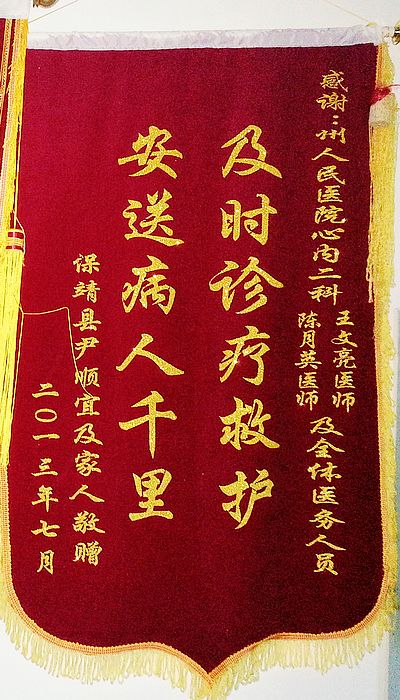 感谢：州人民医院心内二科
王文亮医师
陈月英医师
及全体医务人员
及时诊疗救护
安送病人千里
保靖县尹顺宜及家人敬赠
二〇一三年七月